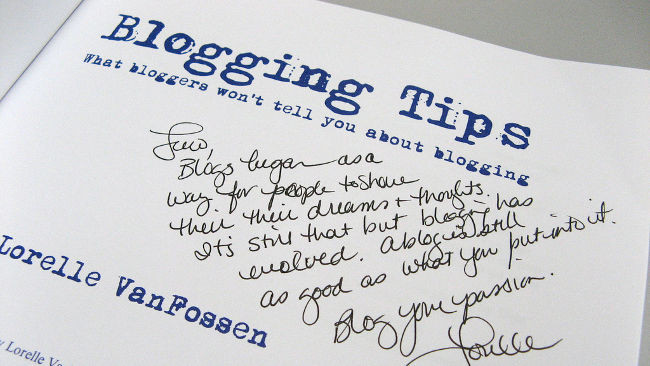 Blogging Tips
What bloggers won't tell you about blogging
Blogs began as a
way for people to share
their their dreams + thoughts.
It's still that but has
evolved. A blog is still
as good as what you put into it.
Blog your passion.
Lorelle
Lorelle VanFossen
y Lorelle Va